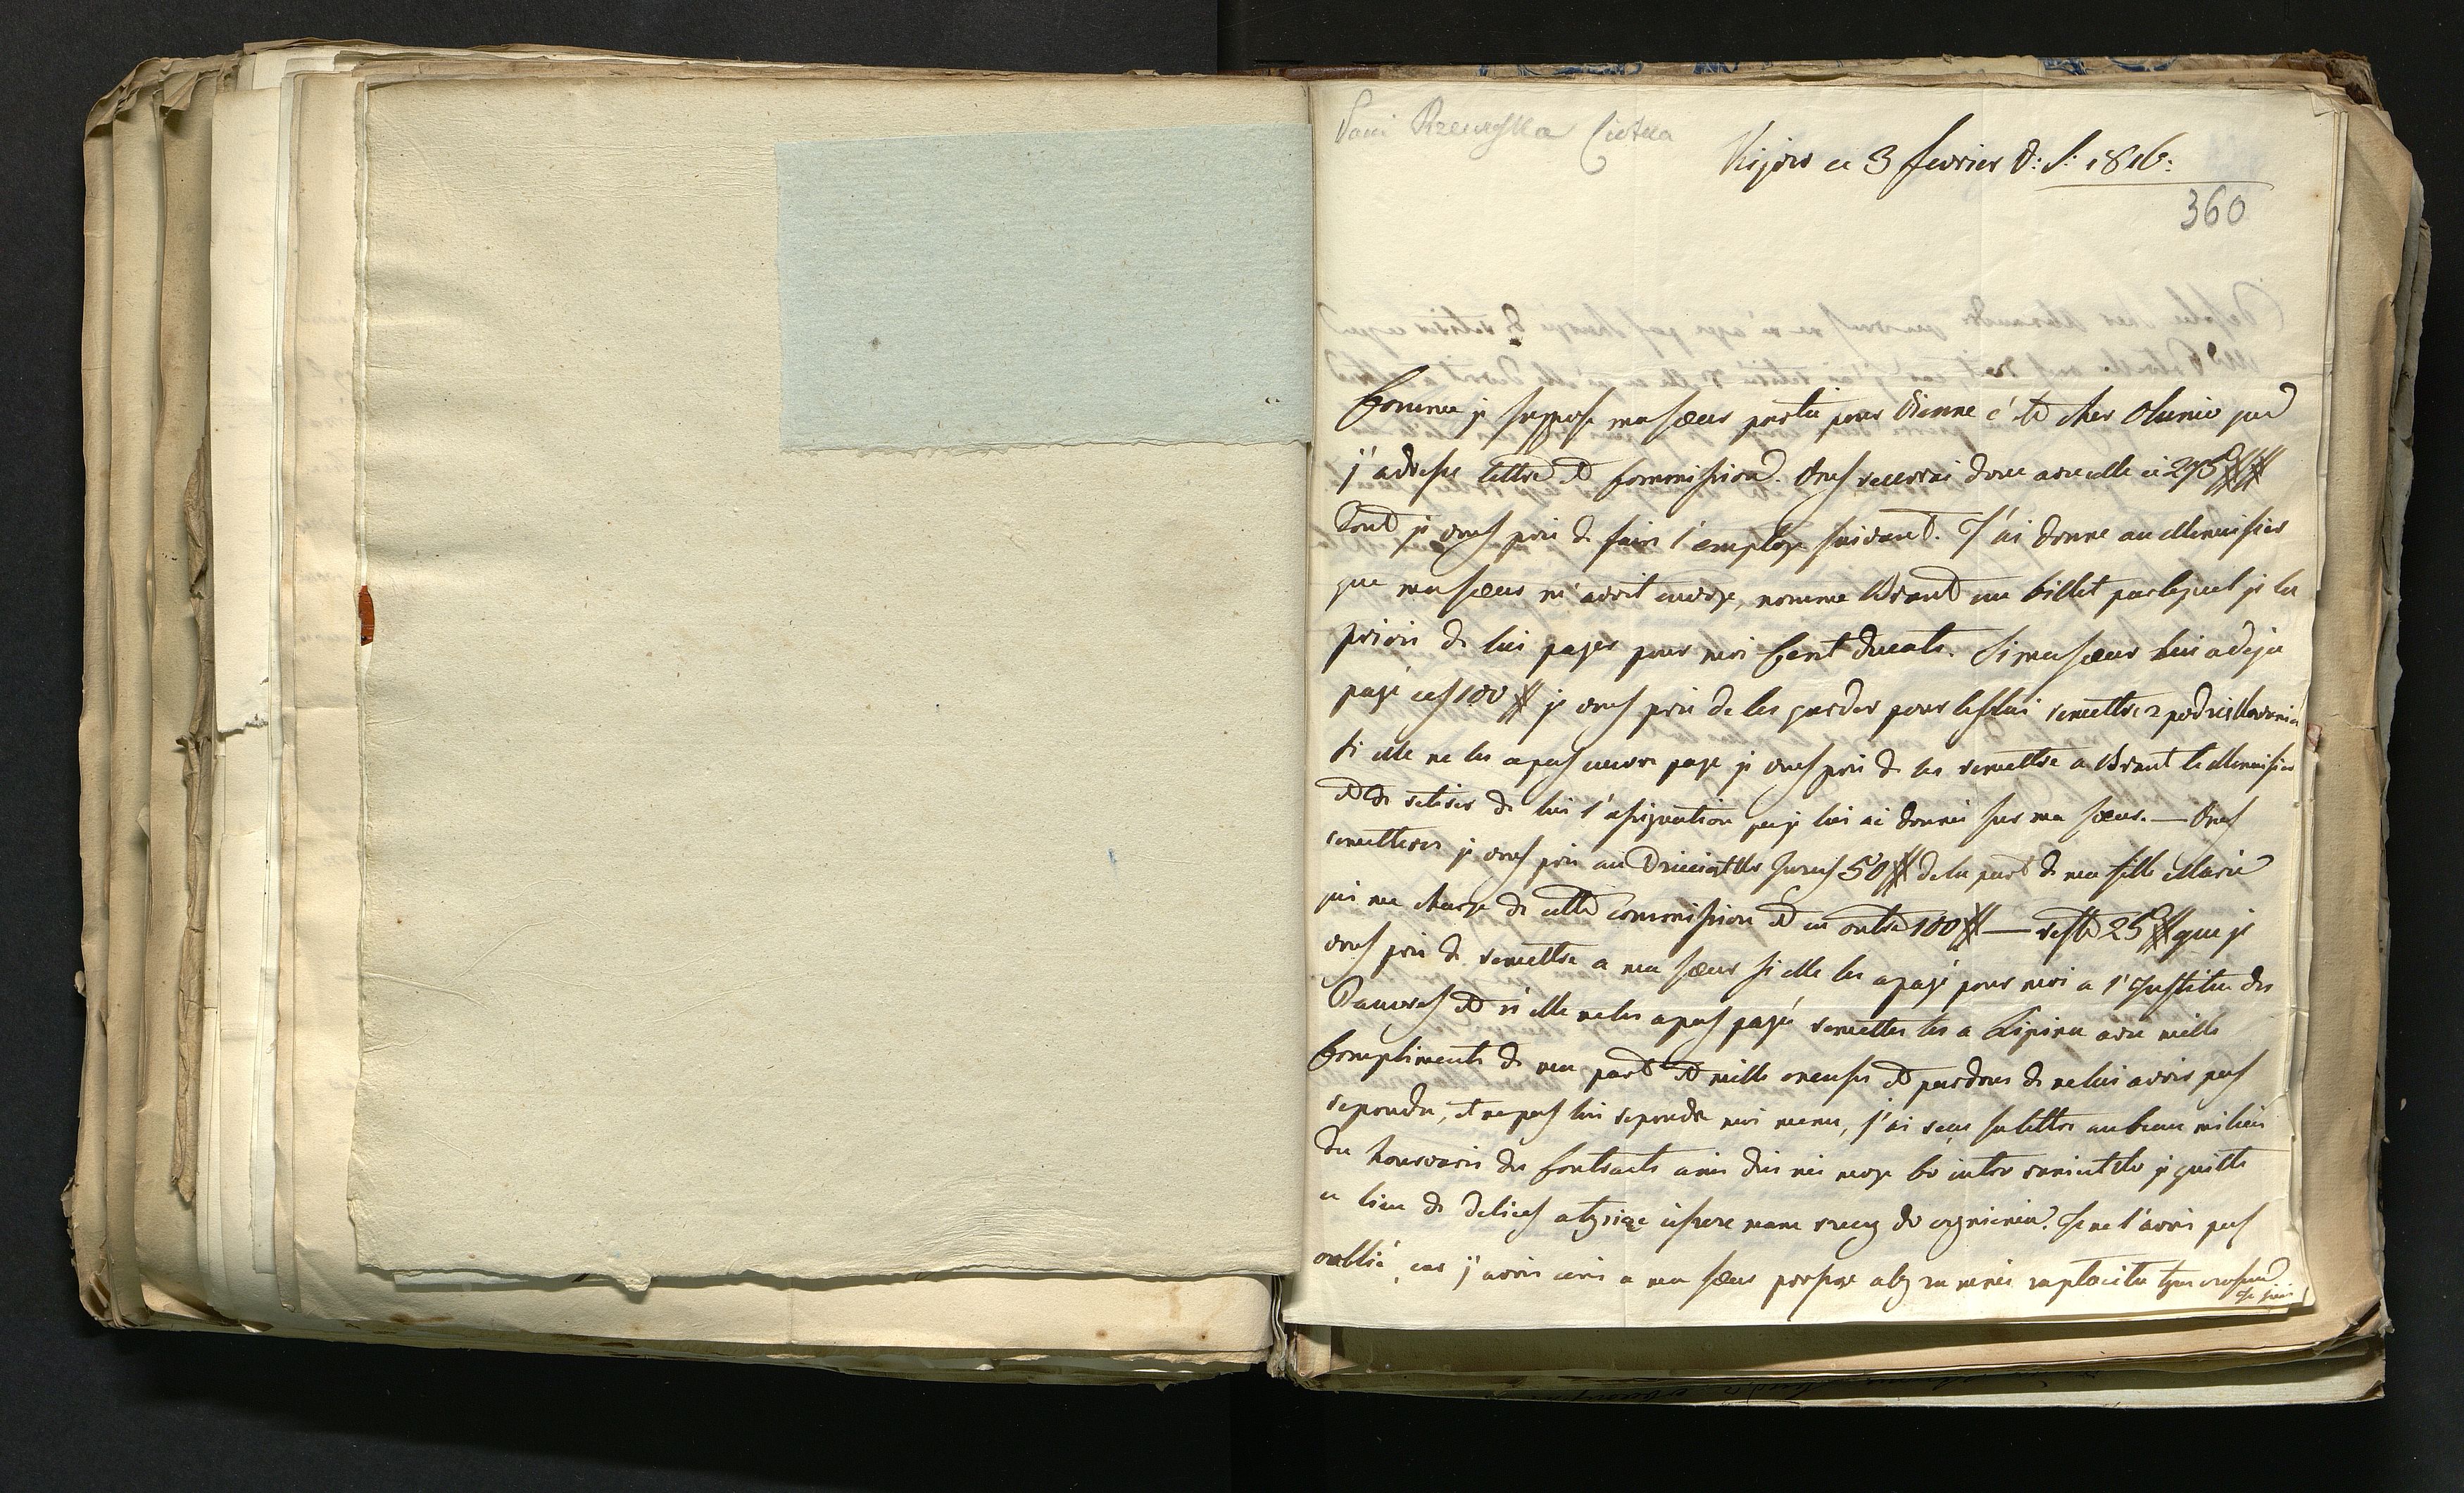 Pani Rzewuska Ciotka
Kijow ce 3 fevrier V: S: 1816:
360
Comme je suppose ma sœur partie pour Vienne c'est cher Olesiu que
j'adresse lettre et Commission. Vous recevrai donc avec celle ci 275 ##
dont je vous prie de faire l'employe suivant. J'ai donne au Menuisier
que ma sœur m'avoit envoye, nomme Brand un billet par lequel je la
priois de lui payer pour moi Cent ducats. Si ma sœur lui a deja
payé ces 100 # je vous prie de les garder pour les lui remettre
Si elle ne les a pas encore paye je vous prie de les remettre a Brant le Menuisier
et de retirer de lui l'assignation que je lui ai donnée sur ma sœur. — Vous
remetterez je vous prie au 50 # de la part de ma fille Marie
qui me charge de cette commission et en outre 100 # — reste 25 # que je
vous prie de remettre a ma sœur si elle les a payé pour moi a l'Institu des
Pauvres et si elle ne les a pas payé remettes les a Lipina avec mille
Compliments de ma part et mille excuses et pardons de ne lui avoir pas
repondu, et ne pas lui repondre moi meme, j'ai reçu sa lettre au beau milieu
du hourvari des Contracts a moy bo je quitte
ce lieu de delices a tysiąc ieszcze mam rzeczy do czynienia. Je ne l'avois pas
oublié, car j'avois ecris a ma sœur prosząc aby za mnie zaplaciła